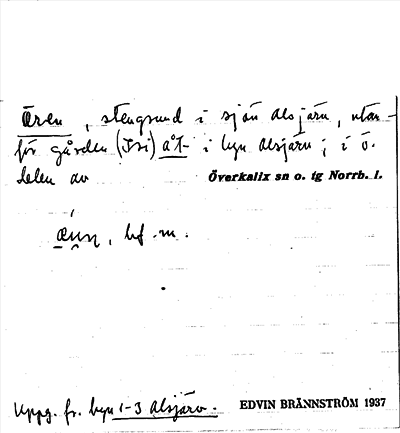 Ären, stengrund i sjön Alsjärv, utan-
för gården (Isi) åt- i byn Alsjärv; i ö.
delen av Överkalix sn o. tg Norrb. l.
bf. m.
Uppg. fr. byn 1-3 Alsjärv. EDVIN BRÄNNSTRÖM 1937